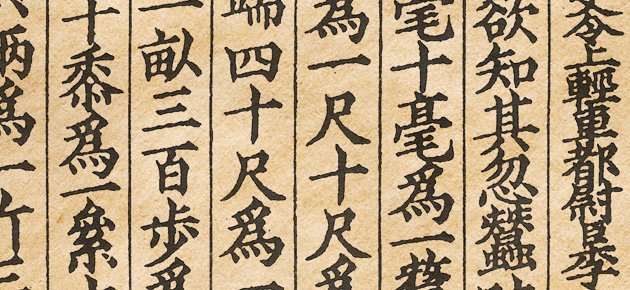 令上輕車都尉臣李
欲知其忽蠶
毫十毫爲一氂
爲一尺十尺爲
端四十尺爲一
一畝三百步爲
十黍爲一絫十
兩爲一斤三